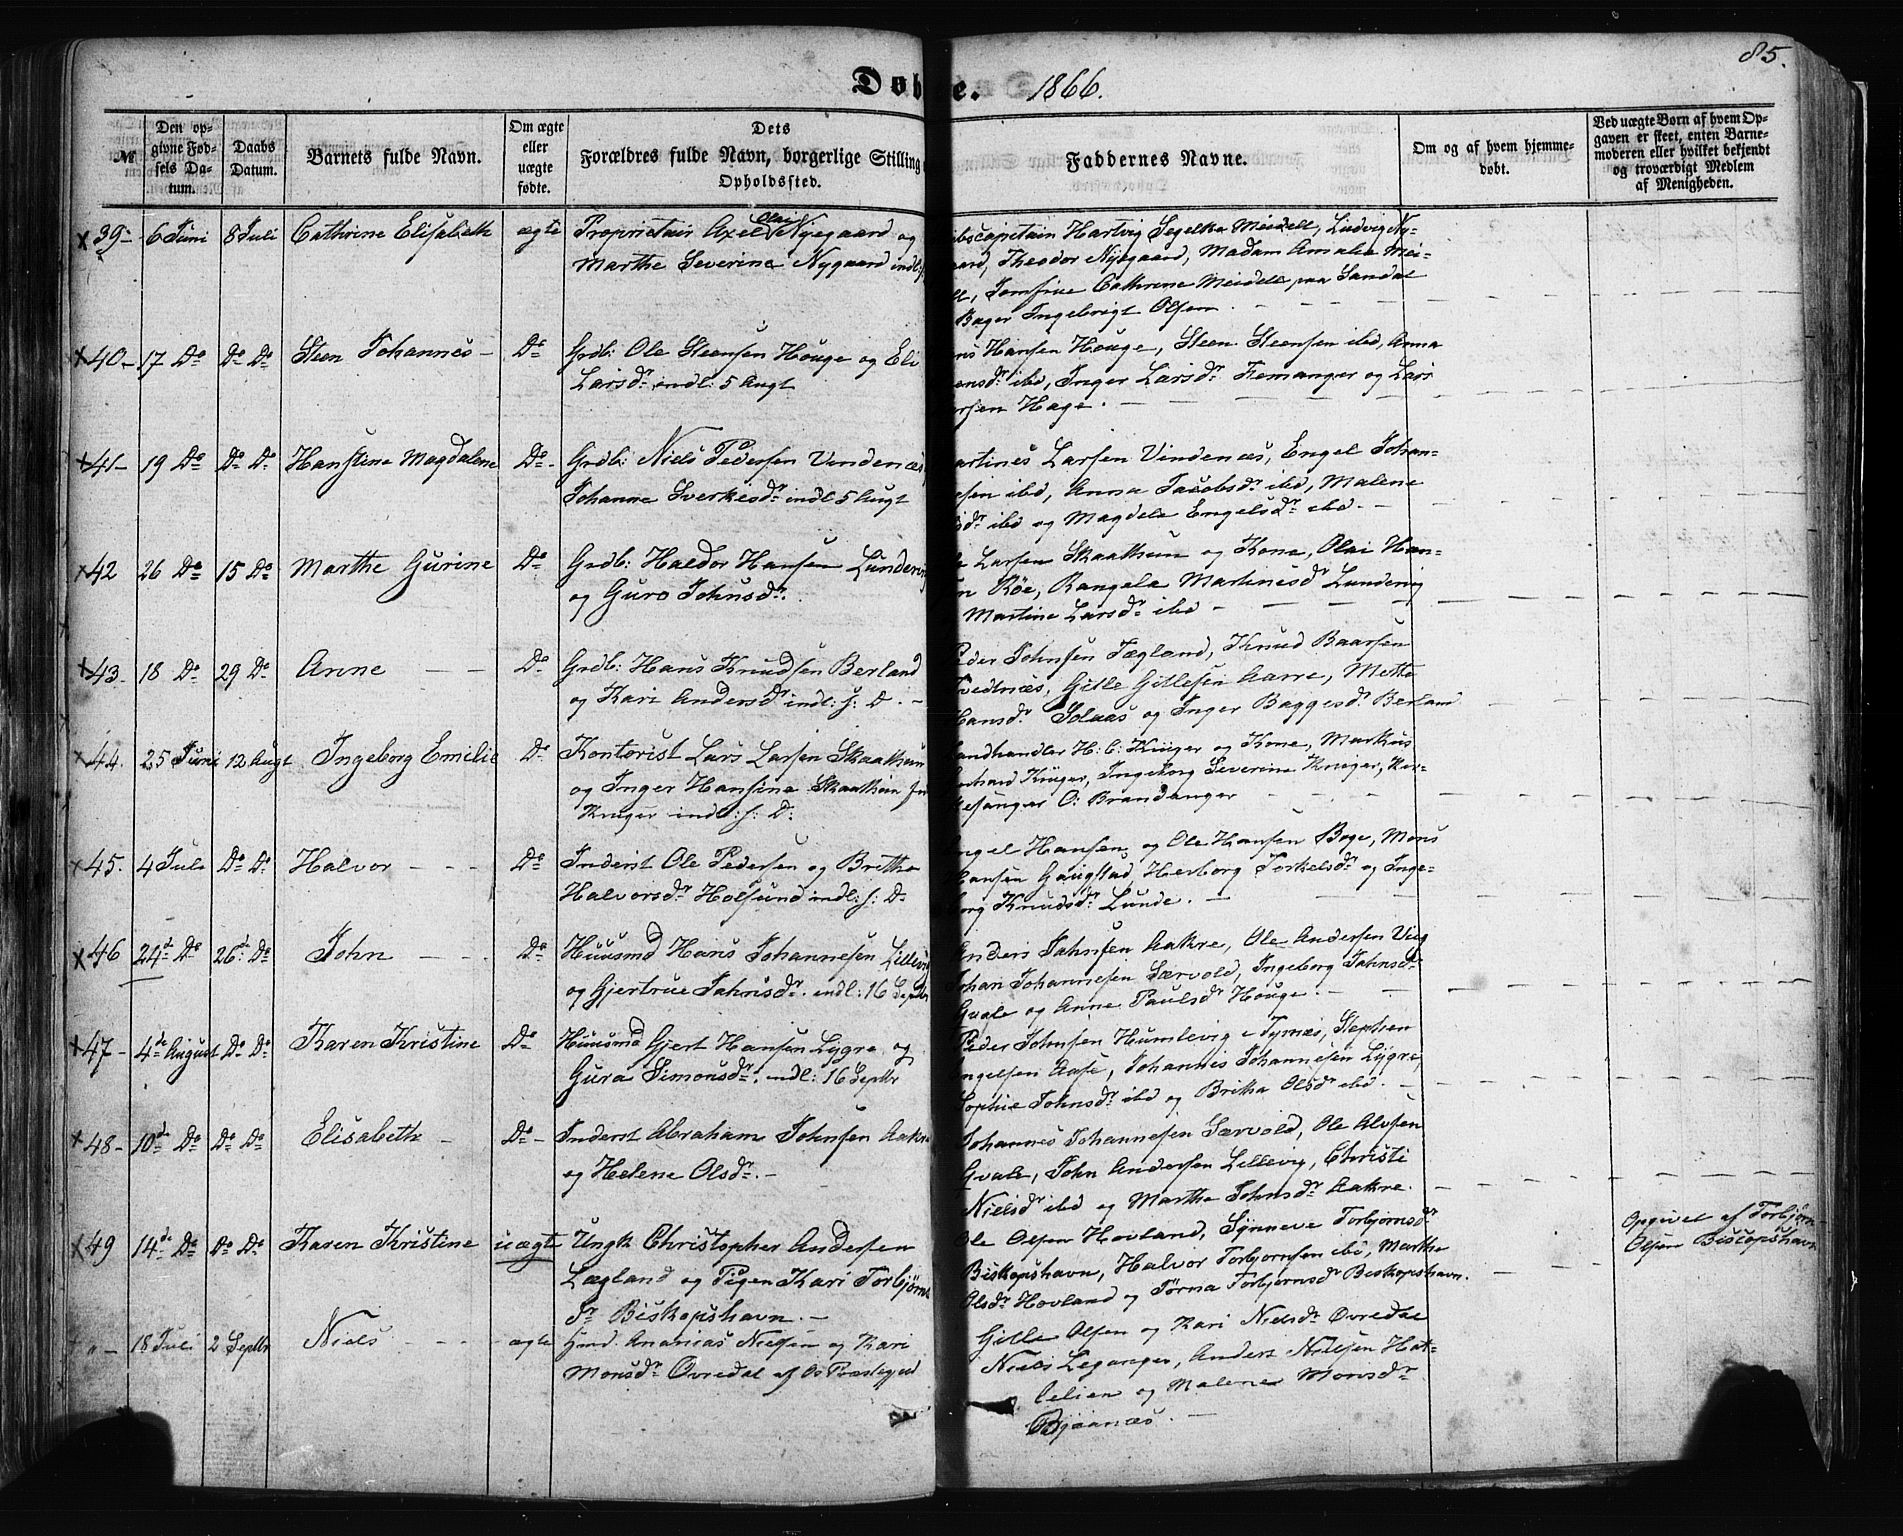 85.
Døb e. 1866.
№
Den opgivne Fødsels Datum.
Daabs Datum.
Barnets fulde Navn.
Om ægte eller uægte fødte.
Dets Forældres fulde Navn, borgerlige Stilling Opholdssted.
Faddernes Navne.
Om og af hvem hjemmedøbt.
Ved uægte Børn af hvem Opgaven er skeet, enten Barnemoderen eller hvilket bekjendt og troværdigt Medlem af Menigheden.
39 6 Juni 8 Juli Cathrine Elisabeth ægte Proprietair Axel Olai Nyegaard og
Marthe Severine Nygaard indl:
capitain Hartvig Segelke Meidell, Ludvig Ny-
aard, Theodor Nyegaard, Madam Amalia Mei-
Jomfrue Cathrine Meidell paa Sandal
Bager Ingebrigt Olsen
40 17 Do Do Do Steen Johannes Do Grdb: Ole Steensen Houge og Eli
Larsdr indl: 5 Augt
ns Hansen Houge, Steen Steensen ibd, Anna
ensdr ibd, Inger Larsdr Femanger og Lars
rsen Hage.
41 19 Do Do Do Hanstine Magdalene Do Grdb: Niels Pedersen Vindenæs
Johanne Sverkesdr indl 5 Augt
artines Larsen Vindenæs, Engel Johan-
esen ibd, Anna Jacobsdr ibd, Malene
sdr ibd og Magdela Engelsdr ibd.
42 26 Do 15 Do Marthe Gurine Do Grdb: Haldor Hansen Lundervig
og Guro Johnsdr.
Larsen Skaathun og Kone, Olai Han-
n Røe, Rangela Martinusdr Lundervig
Martine Larsdr ibd
43 18 Do 29 Do Anne Do Grdb: Hans Knudsen Berland
og Kari Andersdr indl: s: D.
Peder Johnsen Tægland, Knud Baarsen
Tvedtnæs, Gitle Gitlesen Aarre, Mette
Hansdr Solaas og Inger Baggesdr Berland
44 25 Juni 12 Augt Ingeborg Emilie Do Kontorist Lars Larsen Skaathun
og Inger Hansine Skaathun
Krüger indl: s: D:
Landhandler H: C: Krüger og Kone, Markus
Krüger, Ingeborg Severine Krüger,
O: Brandanger
45. 4 Juli Do Do Halvor Do Inderst Ole Pedersen og Britha
Halvorsdr Holsund indl: s: D
Engel Hansen og Ole Hansen Boge, Mons
Hansen Gaugstad Herborg Torkelsdr og Inge-
borg Knudsdr Lunde.
46 24de Do 26de Do John Do Huusmd Hans Johannesen Lillevig
og Gjertrue Jahnsdr. indl: 16 Septbr
Anders Jahnsen Aakre, Ole Andersen Viig
Johan Johannesen Særvold, Ingeborg Jahnsdr
Gvale og Anne Paulsdr Houge.
47 4de August Do Do Karen Kristine Do Huusmd Gjert Hansen Lygre og
Guro Simonsdr. indl: 16 Septbr
Peder Johnsen Humlevig Tyrnæs, Stephen
Engelsen Aase, Johannis Johannesen Lygre,
Sophie Johnsdr ibd og Britha Olsdr ibd.
48 10de Do Do Do Elisabeth Do Inderst Abraham Johnsen Aakre
og Helene Olsdr.
Johannes Johannesen Særvold, Ole Alvsen
Gvale, John Andersen Lillevig, Christi
Nielsdr ibd og Marthe Johnsdr Aakre.
49 14de Do Do Do Karen Kristine uægte Ungk Christopher Andersen
Lægland og Pigen Kari Torbjørns
dr Biskopshavn.
Ole Olsen Hovland, Synneve Torbjørnsdr
Biskopshavn, Halvor Torbjørnsen ibd, Marthe
Olsdr Hovland og Tørna Torbjørnsdr Biskopshavn.
Opgivet af Torbjørn
Olsen Biscopshavn
" 18 Juli 2 Septbr Niels ægte Hmd Ananias Nielsen og Kari
Monsdr Øvredal af Os Præstegjeld
Gitle Olsen og Kari Nielsdr Øvredal
Niels Leganger, Anders Nielsen Hat-
og Malene Monsdr
Bjøanæs.